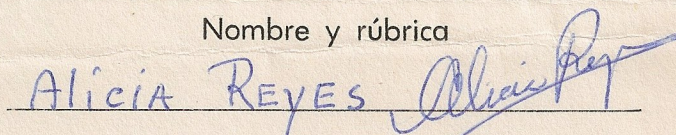 Nombre y rúbrica
Alicia REYES Alicia Rey